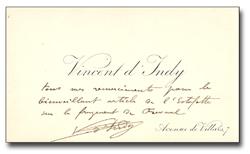 Vincent d'Indy
tous mes remerciements pour le
bienveillant article de l'Estafette
sur le fragment de Fervaal
V. d'Indy
Avenue de Villars, 7